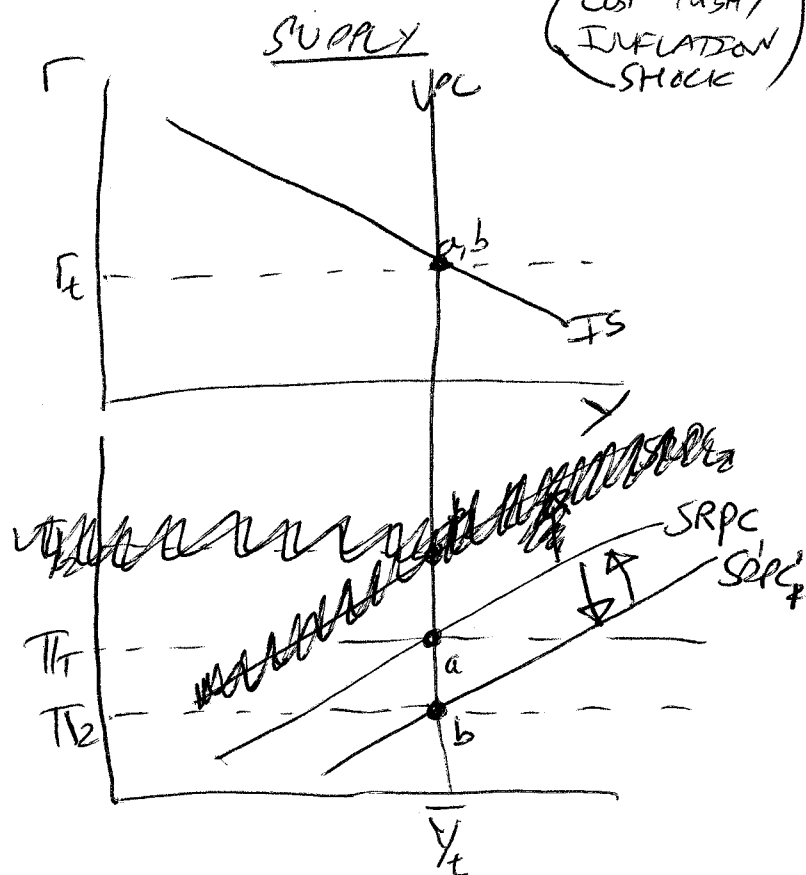 SUPPLY
COST PUSH/
INFLATION
SHOCK
r
VPC
a, b
r_t
IS
Y
SRPC
π_T
a
π_2
b
Ȳ_t